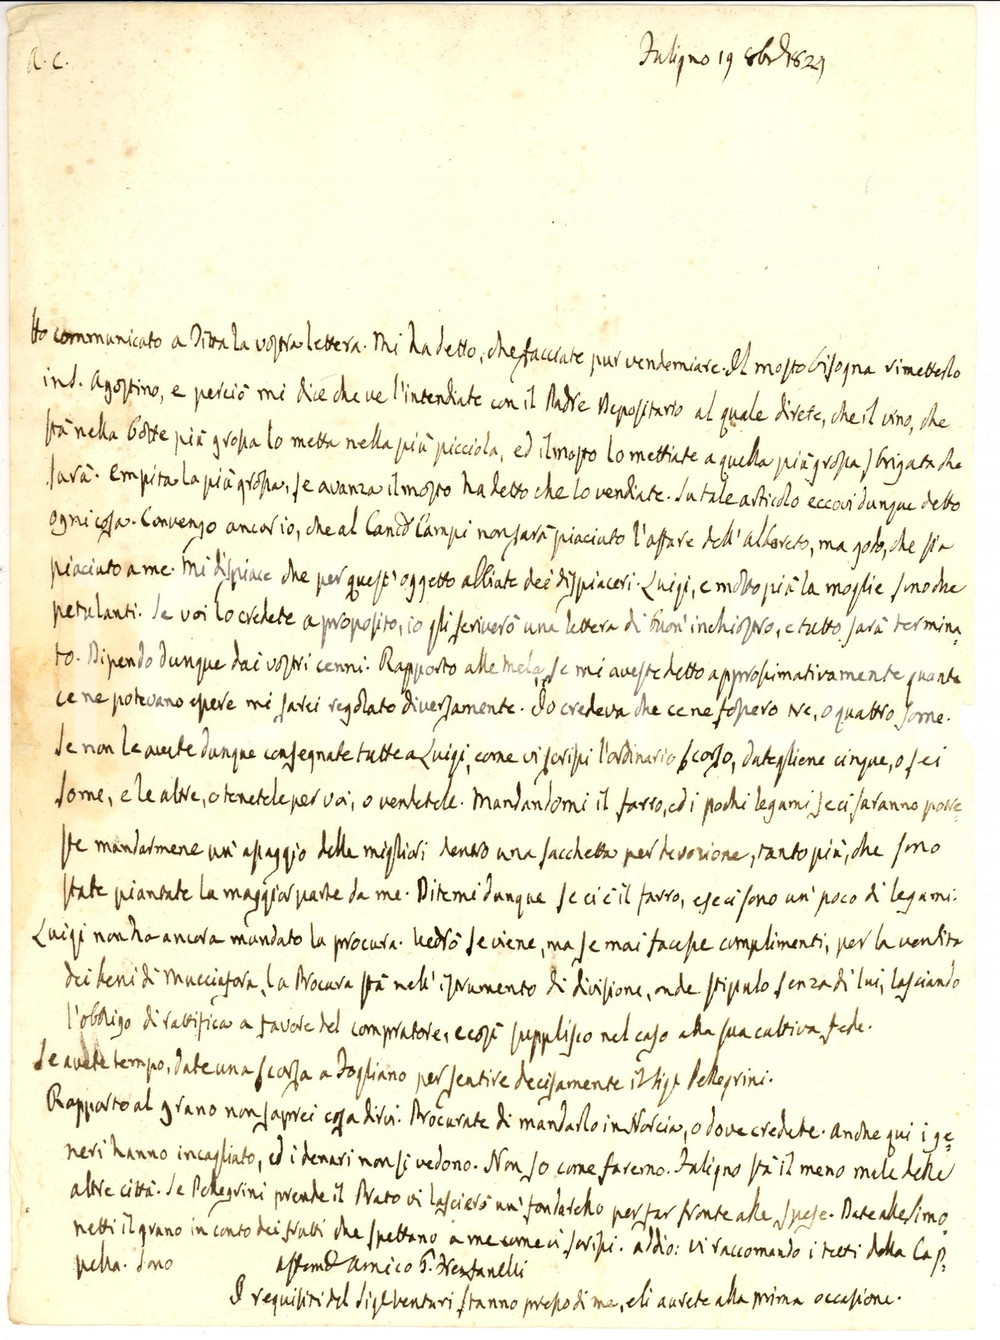 A. C.
Fuligno 19 8bre 1829
Ho communicato a Ditta la vostra lettera. Mi ha detto, che facciate pur vendemiare. Il mosto bisogna rimetterlo
in S. Agostino, e perciò mi dice che ve l'intendiate con il Padre Depositario al quale direte, che il vino, che
stà nella botte più grossa lo metta nella più picciola, ed il mosto lo mettiate a quella più grossa sbrigata che
sarà. Empita la più grossa, se avanza il mosto ha detto che lo vendiate. Su tale articolo eccovi dunque detto
ogni cosa. Convengo ancor io, che al Canco Campi non sarà piaciuto l'affare dell'alboreto, ma godo, che sia
piaciuto a me. Mi dispiace che per quest'oggetto abbiate dei dispiaceri. Luigi, e molto più la moglie sono che
petulanti. Se voi lo credete a proposito, io gli scriverò una lettera di buon'inchiostro, e tutto sarà termina-
to. Dipendo dunque dai vostri cenni. Rapporto alle mela, se mi aveste detto approssimativamente quante
ce ne potevano essere mi sarei regolato diversamente. Io credeva che ce ne fossero tre, o quattro some.
Se non le avete dunque consegnate tutte a Luigi, come vi scrissi l'ordinario scorso, dategliene cinque, o sei
some, e le altre, o tenetele per voi, o vendetele. Mandandomi il farro, ed i pochi legumi se ci saranno potre-
ste mandarmene un'assaggio delle migliori dentro una sacchetta per devozione, tanto più, che sono
state piantate la maggior parte da me. Ditemi dunque se ci è il farro, e se ci sono un'poco di legumi.
Luigi non ha ancora mandato la procura. Vedrò se viene, ma se mai facesse complimenti, per la vendita
dei beni di Mucciafora, la Procura stà nell'istrumento di divisione, onde stipulo senza di lui, lasciando
l'obbligo di ratifica a favore del compratore, e così supplisco nel caso alla sua cattiva fede.
Se avete tempo, date una scorsa a Fogliano per sentire decisamente il Sigr Pellegrini.
Rapporto al grano non saprei cosa dirvi. Procurate di mandarlo in Norcia, o dove credete. Anche qui i ge-
neri hanno incagliato, ed i denari non si vedono. Non so come faremo. Fuligno stà il meno male delle
altre città. Se Pellegrini prende il Prato vi lascierò un'fondarello per far fronte alle spese. Date alle Simo-
netti il grano in conto dei frutti che spettano a me come vi scrissi. Addio: vi raccomando i tetti della Cap-
pella. Sono
affemo Amico G. Frenfanelli
I requisiti del Sige Venturi stanno presso di me, e li avrete alla prima occasione.